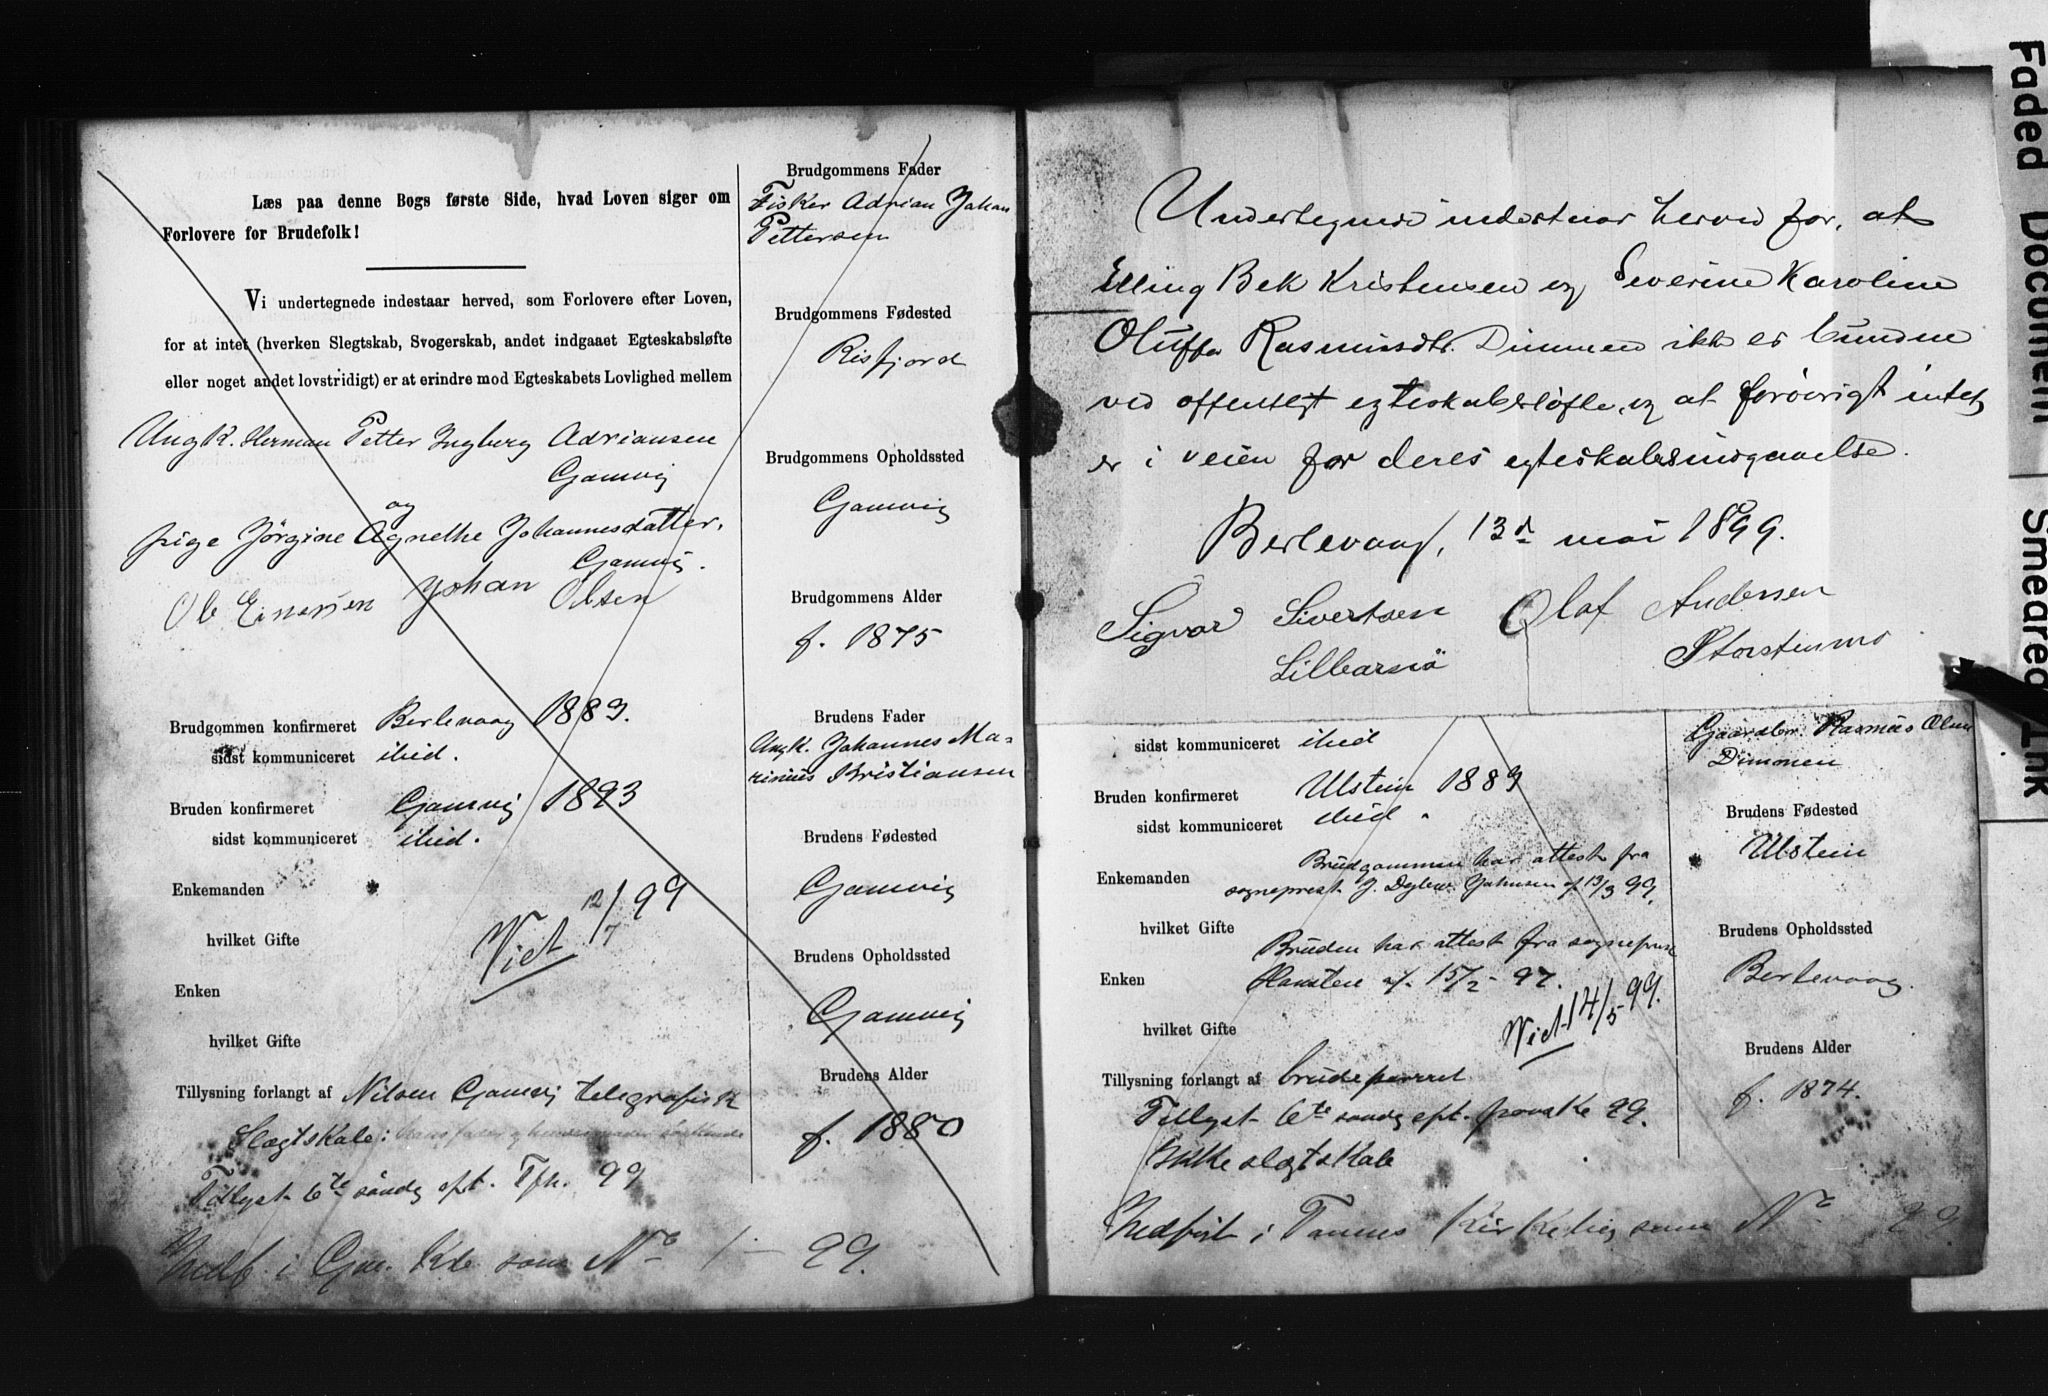 Læs paa denne Bogs første Side, hvad Loven siger om
Forlovere for Brudefolk!
Vi undertegnede indestaar herved, som Forlovere efter Loven,
for at intet (hverken Slegtskab, Svogerskab, andet indgaaet Egteskabsløfte
eller noget andet lovstridigt) er at erindre mod Egteskabets Lovlighed mellem
Ungk. Herman Petter Ingberg Adriansen
Gamvig
og
pige Jørgine Agnethe Johannesdatter.
Gamvig.
Ole Einersen Johan Olsen
Brudgommen konfirmeret Berlevaag 1889.
sidst kommuniceret ibid.
Bruden konfirmeret Gamvig 1893
sidst kommuniceret ibid.
Enkemanden
hvilket Gifte
Viet 12/7 99
Enken
hvilket Gifte
Tillysning forlangt af Nilsen Gamvig telegrafisk
Slægtskab:
Tillyst 6te søndg eft. Tfh. 99
Indf. i Gam. Kb. som No 1 - 99.
Brudgommens Fader
Fisker Adrian Johan
Pettersen
Brudgommens Fødested
Risfjord
Brudgommens Opholdssted
Gamvig
Brudgommens Alder
f. 1875
Brudens Fader
Ungk. Johannes Ma-
rinius Kristiansen
Brudens Fødested
Gamvig
Brudens Opholdssted
Gamvig
Brudens Alder
f. 1880
Undertegnede indestaar herved for, at
Elling Bek Kristensen og Severine Karoline
Oluffa Rasmusdtr. Dimmen ikke er bundne
ved offentligt egteskabsløfte, og at forøvrigt intet
er i veien for deres egteskabsindgaaelse.
Berlevaag, 13de mai 1899.
Sigvar Sivertsen Olaf Andersen
Lillbarsiö Storstenmo
sidst kommuniceret ibid
Bruden konfirmeret Ulstein 1889
sidst kommuniceret ibid.
Brudgommen har attest fra
Enkemanden sogneprest J. Johnsen af 13/3 99.
hvilket Gifte
Bruden har attest fra sogneprest
Enken Hansten af 15/2 - 97.
hvilket Gifte
Viet 14/5 99.
Tillysning forlangt af brudeparret
Tillyst 6te søndg eft. paaske 99.
Ikke slægtskab
Indført i Tanens Kirkebog som No 99
Gaardbr. Rasmus Olsen
Dimmen
Brudens Fødested
Ulstein
Brudens Opholdssted
Berlevaag.
Brudens Alder
f. 1874.
Faded Document
Smeared Ink